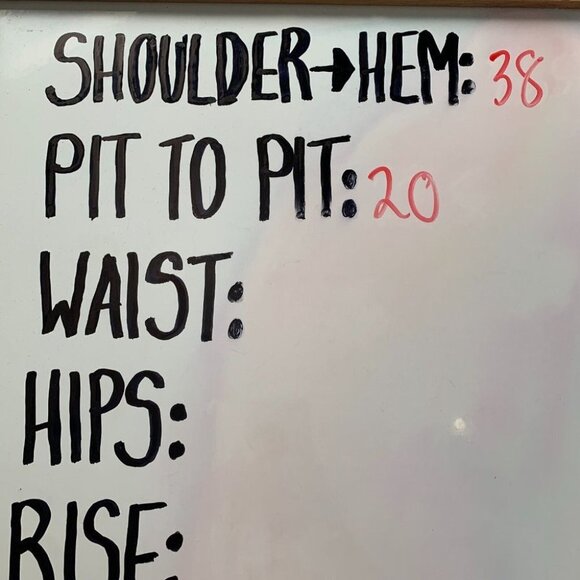 SHOULDER→HEM: 38
PIT TO PIT: 20
WAIST:
HIPS:
RISE: